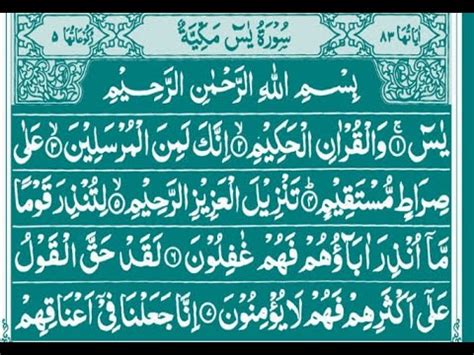 اٰيَاتُهَا ٨٣ سُوْرَةُ يٰسٓ مَكِّيَّةٌ رُكُوْعَاتُهَا ٥
بِسْمِ اللهِ الرَّحْمٰنِ الرَّحِيْمِ
يٰسٓ ۚ۝١ وَالْقُرْاٰنِ الْحَكِيْمِ ۙ۝٢ اِنَّكَ لَمِنَ الْمُرْسَلِيْنَ ۙ۝٣ عَلٰى
صِرَاطٍ مُّسْتَقِيْمٍ ؕ۝٤ تَنْزِيْلَ الْعَزِيْزِ الرَّحِيْمِ ۙ۝٥ لِتُنْذِرَ قَوْمًا
مَّآ اُنْذِرَ اٰبَآؤُهُمْ فَهُمْ غٰفِلُوْنَ ۝٦ لَقَدْ حَقَّ الْقَوْلُ
عَلٰٓى اَكْثَرِهِمْ فَهُمْ لَا يُؤْمِنُوْنَ ۝٧ اِنَّا جَعَلْنَا فِيْٓ اَعْنَاقِهِمْ